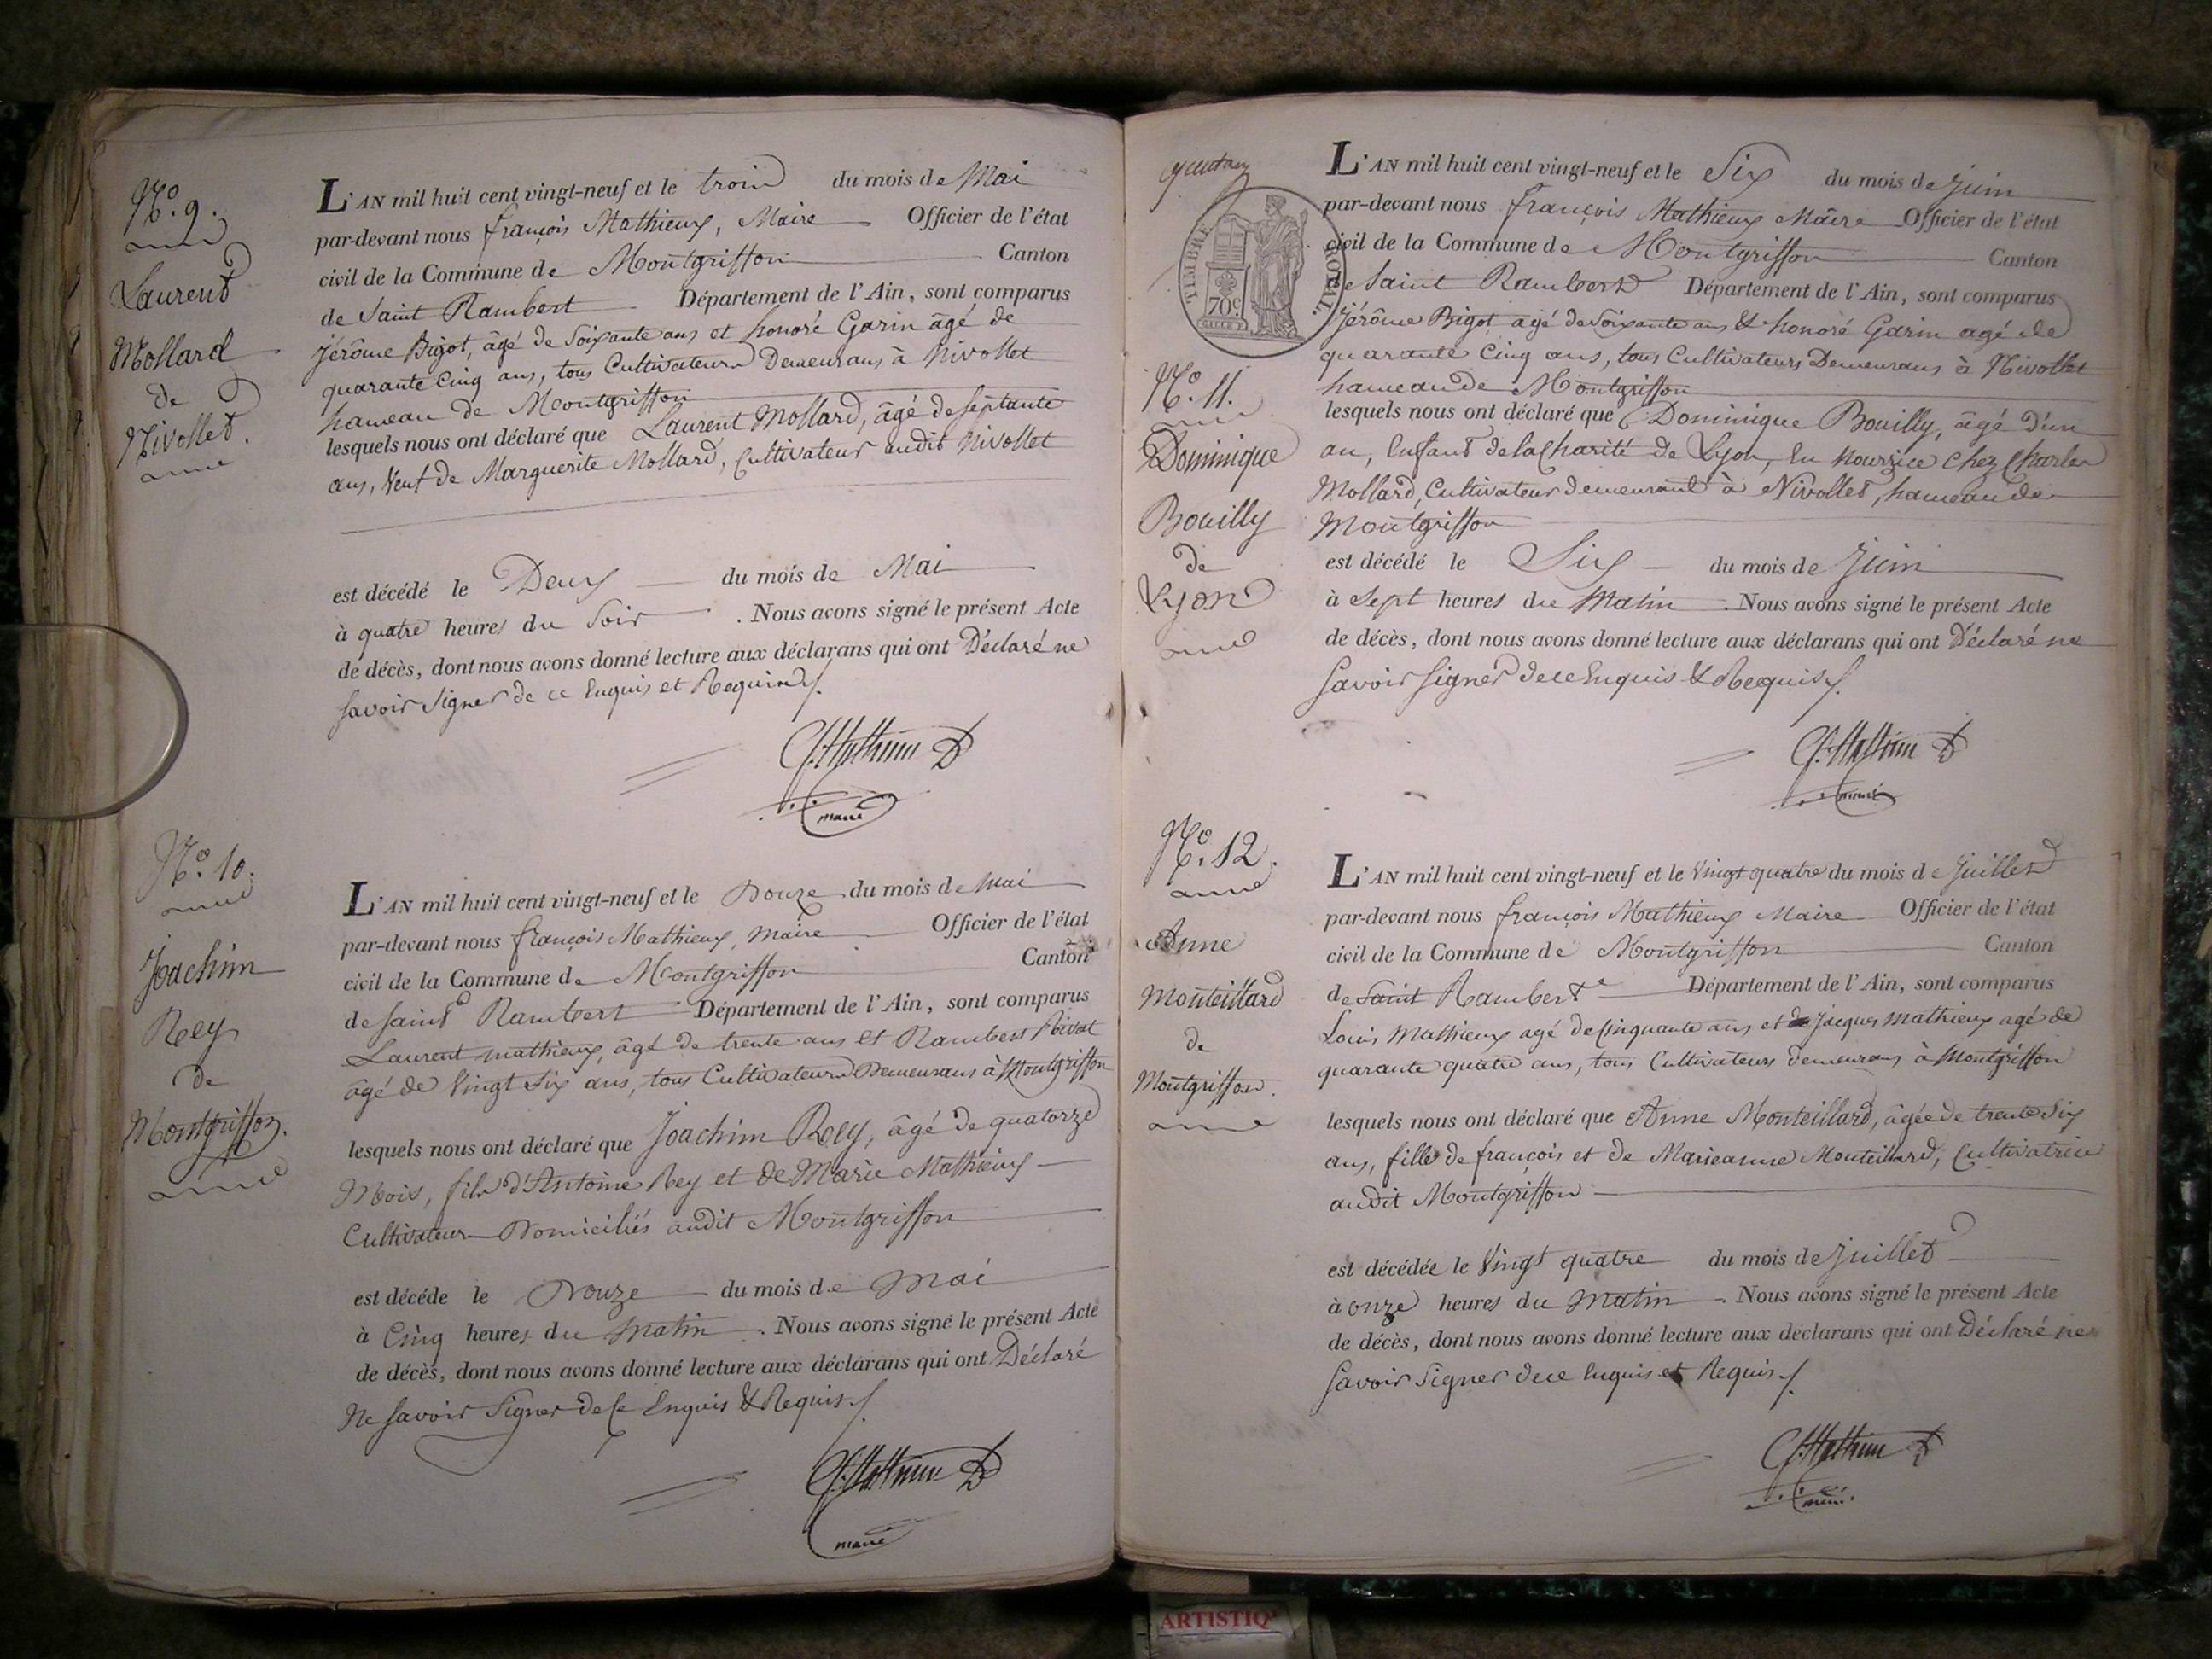 N.° 9.
Laurent
Mollard
de
Nivollet.
L'AN mil huit cent vingt-neuf et le trois du mois de Mai
par-devant nous françois Mathieux, Maire Officier de l'état
civil de la Commune de Montgriffon Canton
de Saint Rambert Département de l'Ain, sont comparus
jérôme Bigot, âgé de Soixante ans et honoré Garin âgé de
quarante Cinq ans, tous Cultivateurs Demeurans à Nivollet
hameau de Montgriffon
lesquels nous ont déclaré que Laurent Mollard, âgé de septante
ans, Veuf de Marguerite Mollard, Cultivateur audit Nivollet
est décédé le Deux du mois de Mai
à quatre heures du Soir . Nous avons signé le présent Acte
de décès, dont nous avons donné lecture aux déclarans qui ont Déclaré ne
savoir Signer de ce Enquis et Requis
maire
N.° 10.
Joachim
Rey
de
Montgriffon.
L'AN mil huit cent vingt-neuf et le Douze du mois de Mai
par-devant nous françois Mathieux, maire Officier de l'état
civil de la Commune de Montgriffon Canton
de saint Rambert Département de l'Ain, sont comparus
Laurent mathieux, âgé de trente ans et Rambert Rivat
âgé de Vingt Six ans, tous Cultivateurs Demeurans à Montgriffon
lesquels nous ont déclaré que Joachim Rey, âgé de quatorze
Mois, fils d'Antoine Rey et de Marie Mathieux
Cultivateurs Domiciliés audit Montgriffon
est décéde le Douze du mois de Mai
à Cinq heures du Matin . Nous avons signé le présent Acte
de décès, dont nous avons donné lecture aux déclarans qui ont Déclaré
Ne savoir Signer de Ce Enquis & Requis
maire
TIMBRE ROYAL.
70c
N.° 11.
Dominique
Bouilly
de
Lyon
L'AN mil huit cent vingt-neuf et le Six du mois de Juin
par-devant nous françois Mathieux Maire Officier de l'état
civil de la Commune de Montgriffon Canton
de Saint Rambert Département de l'Ain, sont comparus
Jérôme Bigot agé de Soixante ans & honoré Garin agé de
quarante Cinq ans, tous Cultivateurs Demeurans à Nivollet
hameau de Montgriffon
lesquels nous ont déclaré que Dominique Bouilly, âgé d'un
an, Enfant de la Charité de Lyon, En Nourrice chez Charles
Mollard, Cultivateur demeurant à Nivollet, hameau de
Montgriffon
est décédé le Six du mois de Juin
à Sept heures du Matin . Nous avons signé le présent Acte
de décès, dont nous avons donné lecture aux déclarans qui ont Déclaré ne
Savoir signer de ce Enquis & Requis
maire
N.° 12.
Anne
Monteillard
de
Montgriffon.
L'AN mil huit cent vingt-neuf et le Vingt quatre du mois de Juillet
par-devant nous françois Mathieux Maire Officier de l'état
civil de la Commune de Montgriffon Canton
de Saint Rambert Département de l'Ain, sont comparus
Louis Mathieux agé de Cinquante ans et Jacques Mathieux agé de
quarante quatre ans, tous Cultivateurs demeurans à Montgriffon
lesquels nous ont déclaré que Anne Monteillard, âgée de trente Six
ans, fille de françois et de Marieanne Monteillard, Cultivatrice
audit Montgriffon
est décédée le Vingt quatre du mois de Juillet
à onze heures du Matin . Nous avons signé le présent Acte
de décès, dont nous avons donné lecture aux déclarans qui ont Déclaré ne
Savoir Signer de ce Enquis et Requis
ARTISTIQ